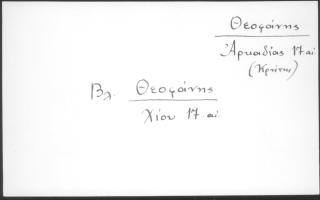 Θεοφάνης
Ἀρκαδίας 17 αἰ.
(Κρήτης)
Βλ. Θεοφάνης
Χίου 17 αἰ.